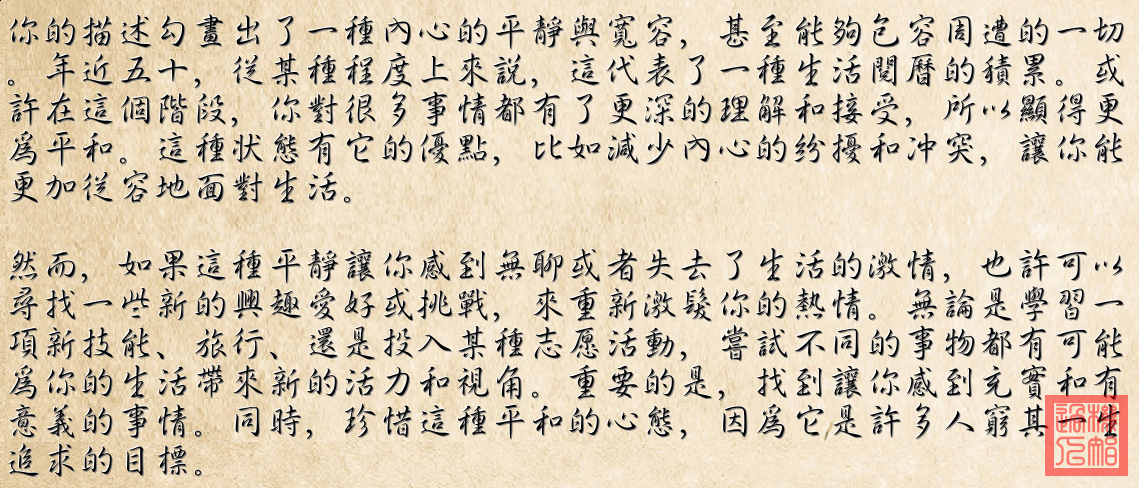 你的描述勾畫出了一種內心的平靜與寬容，甚至能夠包容周遭的一切
。年近五十，從某種程度上來說，這代表了一種生活閱曆的積累。或
許在這個階段，你對很多事情都有了更深的理解和接受，所以顯得更
爲平和。這種狀態有它的優點，比如減少內心的紛擾和冲突，讓你能
更加從容地面對生活。
然而，如果這種平靜讓你感到無聊或者失去了生活的激情，也許可以
尋找一些新的興趣愛好或挑戰，來重新激髮你的熱情。無論是學習一
項新技能、旅行、還是投入某種志愿活動，嘗試不同的事物都有可能
爲你的生活帶來新的活力和視角。重要的是，找到讓你感到充實和有
意義的事情。同時，珍惜這種平和的心態，因爲它是許多人窮其一生
追求的目標。